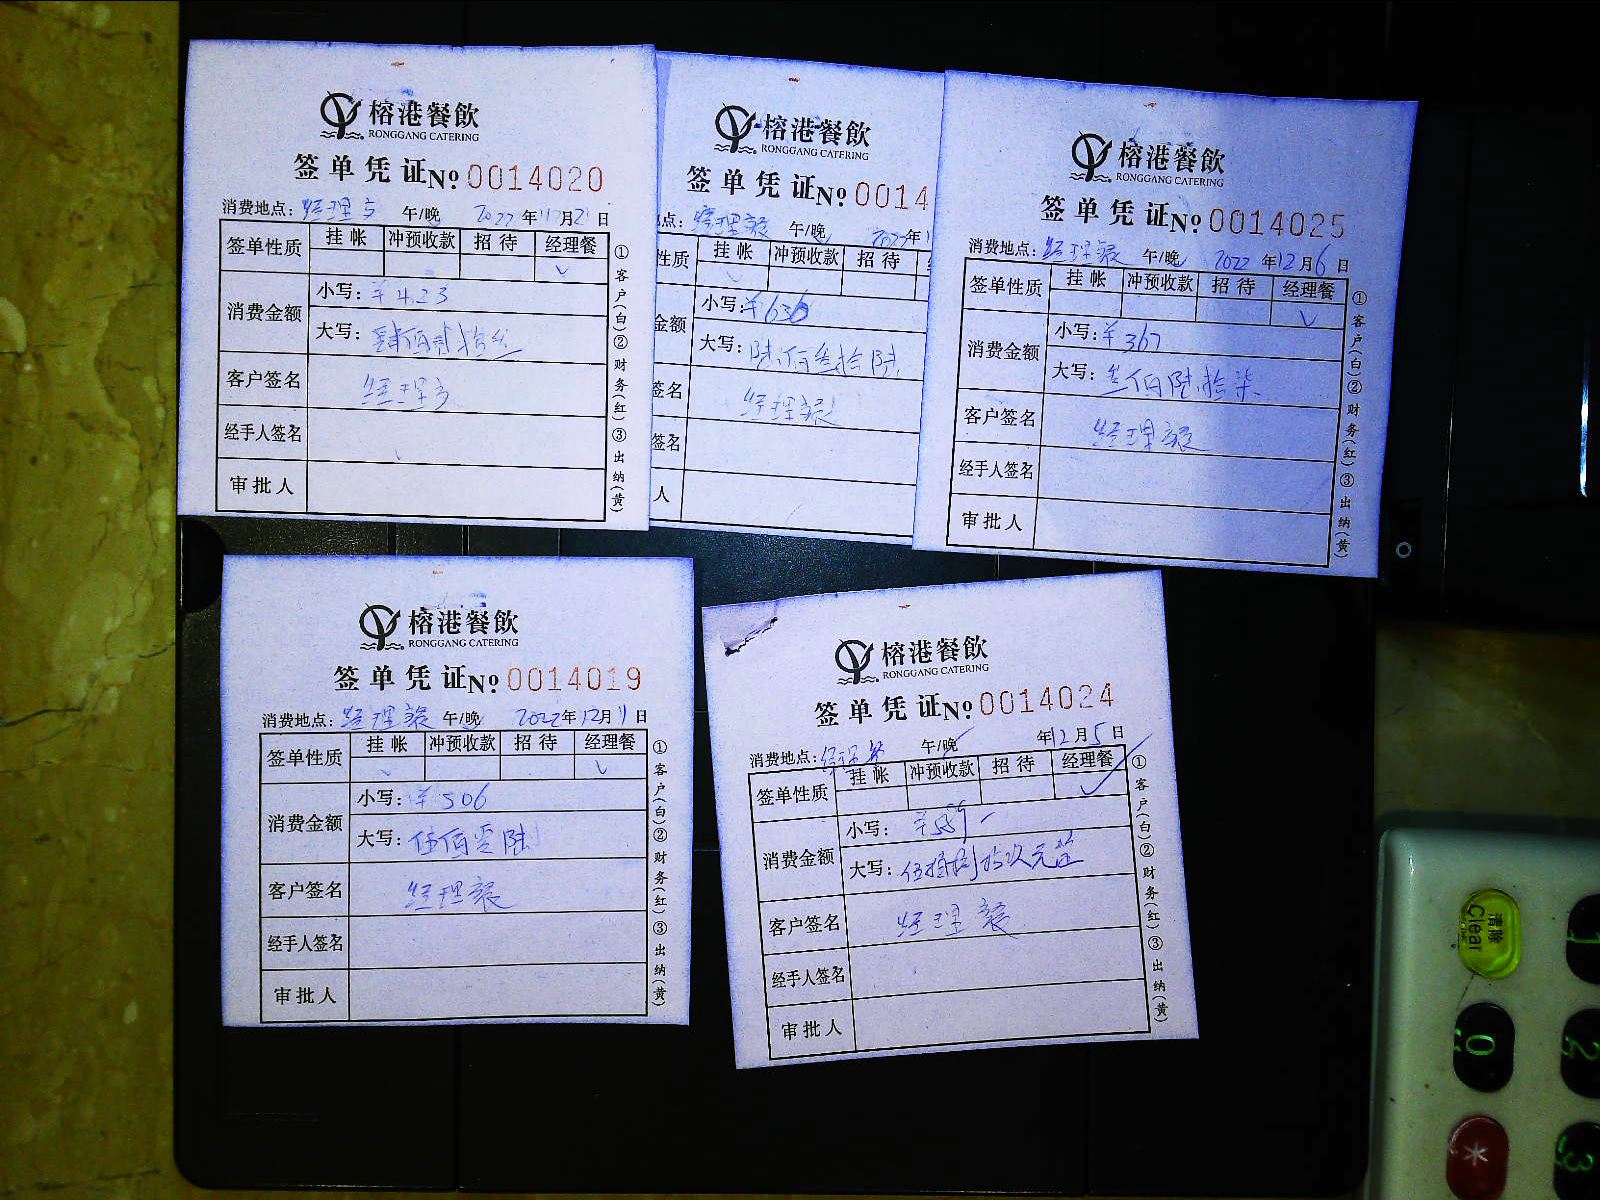 榕港餐飲
RONGGANG CATERING
签单凭证 No 0014020
消费地点：经理 午/晚 2022年11月2日
签单性质 挂帐 冲预收款 招待 经理餐
✓
消费金额 小写：¥423
大写：肆佰贰拾叁
客户签名 经理
经手人签名
审批人
①客户(白)②财务(红)③出纳(黄)
榕港餐飲
RONGGANG CATERING
签单凭证 No 0014
点：经理餐 午/晚 2022年1
性质 挂帐 冲预收款 招待
✓
金额 小写：¥636
大写：陆佰叁拾陆
签名 经理餐
签名
人
榕港餐飲
RONGGANG CATERING
签单凭证 No 0014025
消费地点：经理餐 午/晚 2022年12月6日
签单性质 挂帐 冲预收款 招待 经理餐
✓
消费金额 小写：¥367
大写：叁佰陆拾柒
客户签名 经理餐
经手人签名
审批人
①客户(白)②财务(红)③出纳(黄)
榕港餐飲
RONGGANG CATERING
签单凭证 No 0014019
消费地点：经理餐 午/晚 2022年12月1日
签单性质 挂帐 冲预收款 招待 经理餐
✓ ✓
消费金额 小写：¥506
大写：伍佰零陆
客户签名 经理餐
经手人签名
审批人
①客户(白)②财务(红)③出纳(黄)
榕港餐飲
RONGGANG CATERING
签单凭证 No 0014024
消费地点：经理餐 午/晚 年12月5日
签单性质 挂帐 冲预收款 招待 经理餐
✓
消费金额 小写：¥589-
大写：伍佰捌拾玖元正
客户签名 经理餐
经手人签名
审批人
①客户(白)②财务(红)③出纳(黄)
清除
Clear
0
2
*
3